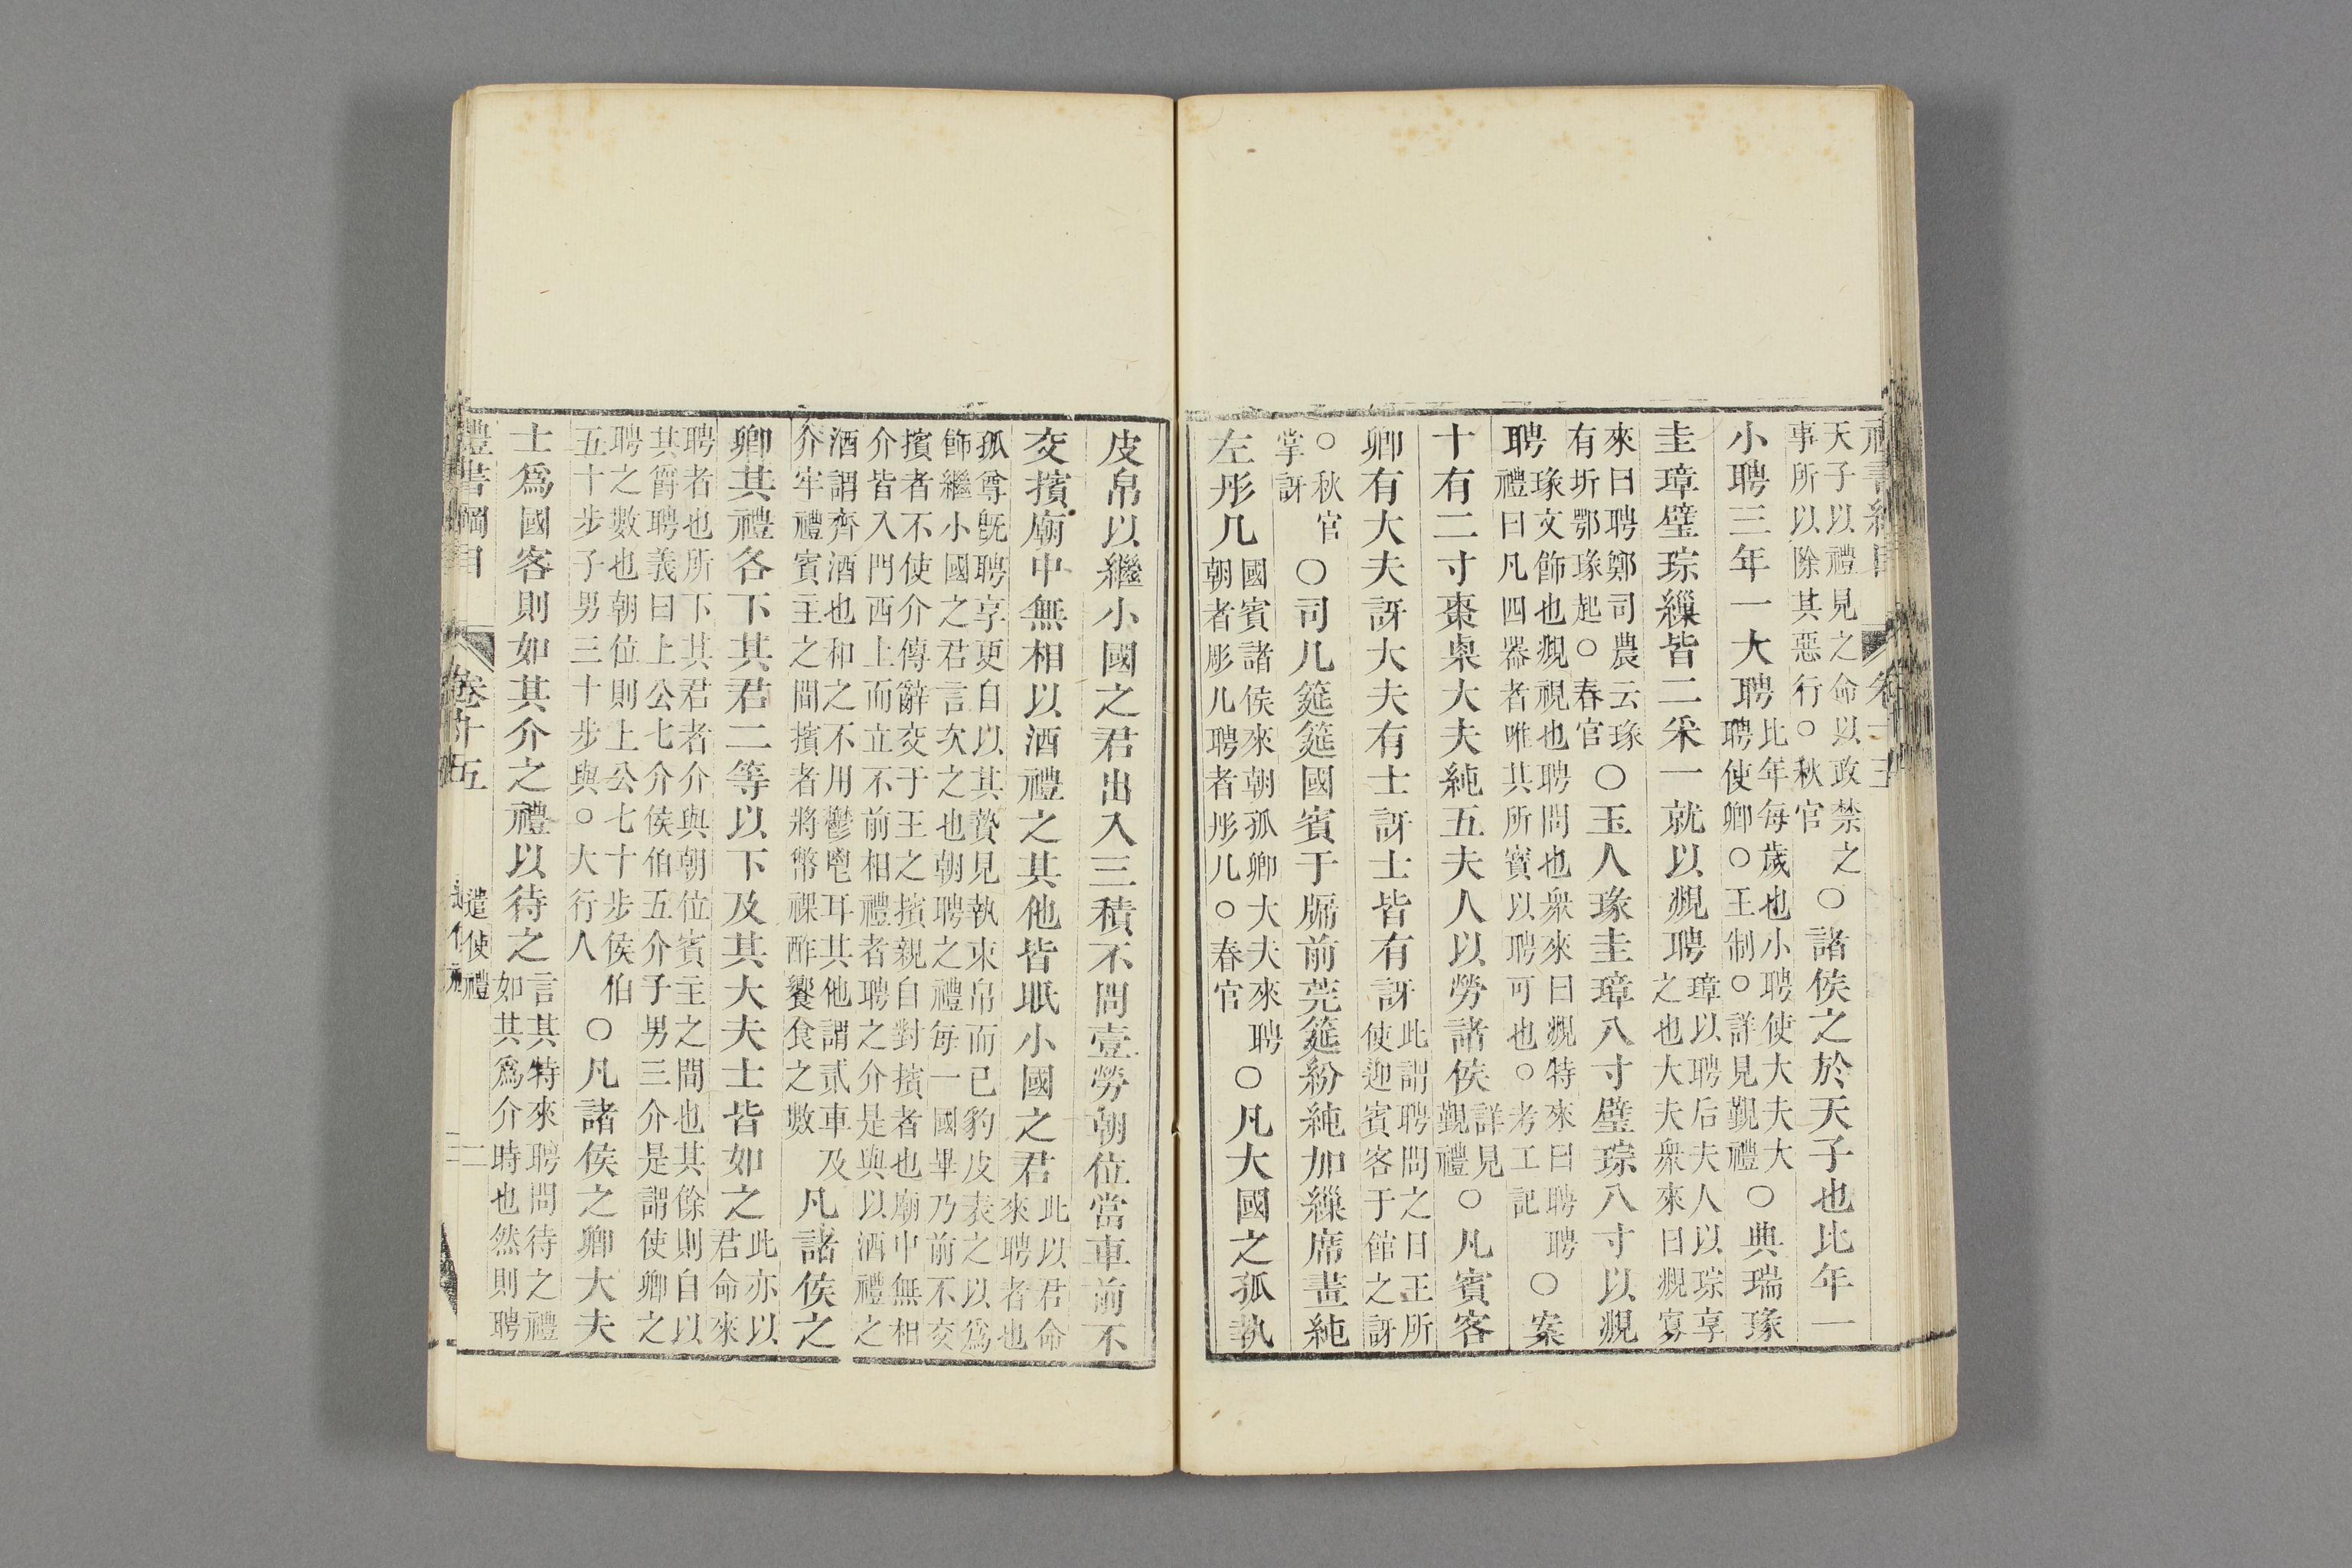 天子以禮見之命以政禁之
事所以除其惡行○秋官
○諸侯之於天子也比年一
小聘三年一大聘
比年每歲也小聘使大夫大
聘使卿○王制○詳見覲禮
○典瑞瑑
圭璋璧琮繅皆二采一就以覜聘
璋以聘后夫人以琮享
之也大夫衆來曰覜寡
來曰聘鄭司農云瑑
有圻鄂瑑起○春官
○玉人瑑圭璋八寸璧琮八寸以覜
聘
瑑文飾也覜視也聘問也衆來曰覜特來曰聘聘
禮曰凡四器者唯其所寳以聘可也○考工記
○案
十有二寸棗㮚大夫純五夫人以勞諸侯
詳見
覲禮
○凡賓客
卿有大夫訝大夫有士訝士皆有訝
此謂聘問之日王所
使迎賓客于館之訝
○秋官
掌訝
○司几筵筵國賓于牖前莞筵紛純加繅席畫純
左彤几
國賓諸侯來朝孤卿大夫來聘
朝者彫几聘者彤几○春官
○凡大國之孤執
皮帛以繼小國之君出入三積不問壹勞朝位當車前不
交擯廟中無相以酒禮之其他皆眡小國之君
此以君命
來聘者也
孤尊旣聘享更自以其贄見執束帛而已豹皮表之以爲
飾繼小國之君言次之也朝聘之禮每一國畢乃前不交
擯者不使介傳辭交于王之擯親自對擯者也廟中無相
介皆入門西上而立不前相禮者聘之介是與以酒禮之
酒謂齊酒也和之不用鬱鬯耳其他謂貳車及
介牢禮賓主之間擯者將幣祼酢饗食之數
凡諸侯之
卿其禮各下其君二等以下及其大夫士皆如之
此亦以
君命來
聘者也所下其君者介與朝位賓主之間也其餘則自以
其爵聘義曰上公七介侯伯五介子男三介是謂使卿之
聘之數也朝位則上公七十步侯伯
五十步子男三十步與○大行人
○凡諸侯之卿大夫
士爲國客則如其介之禮以待之
言其特來聘問待之禮
如其爲介時也然則聘
禮書綱目 卷十五 遣使禮 二